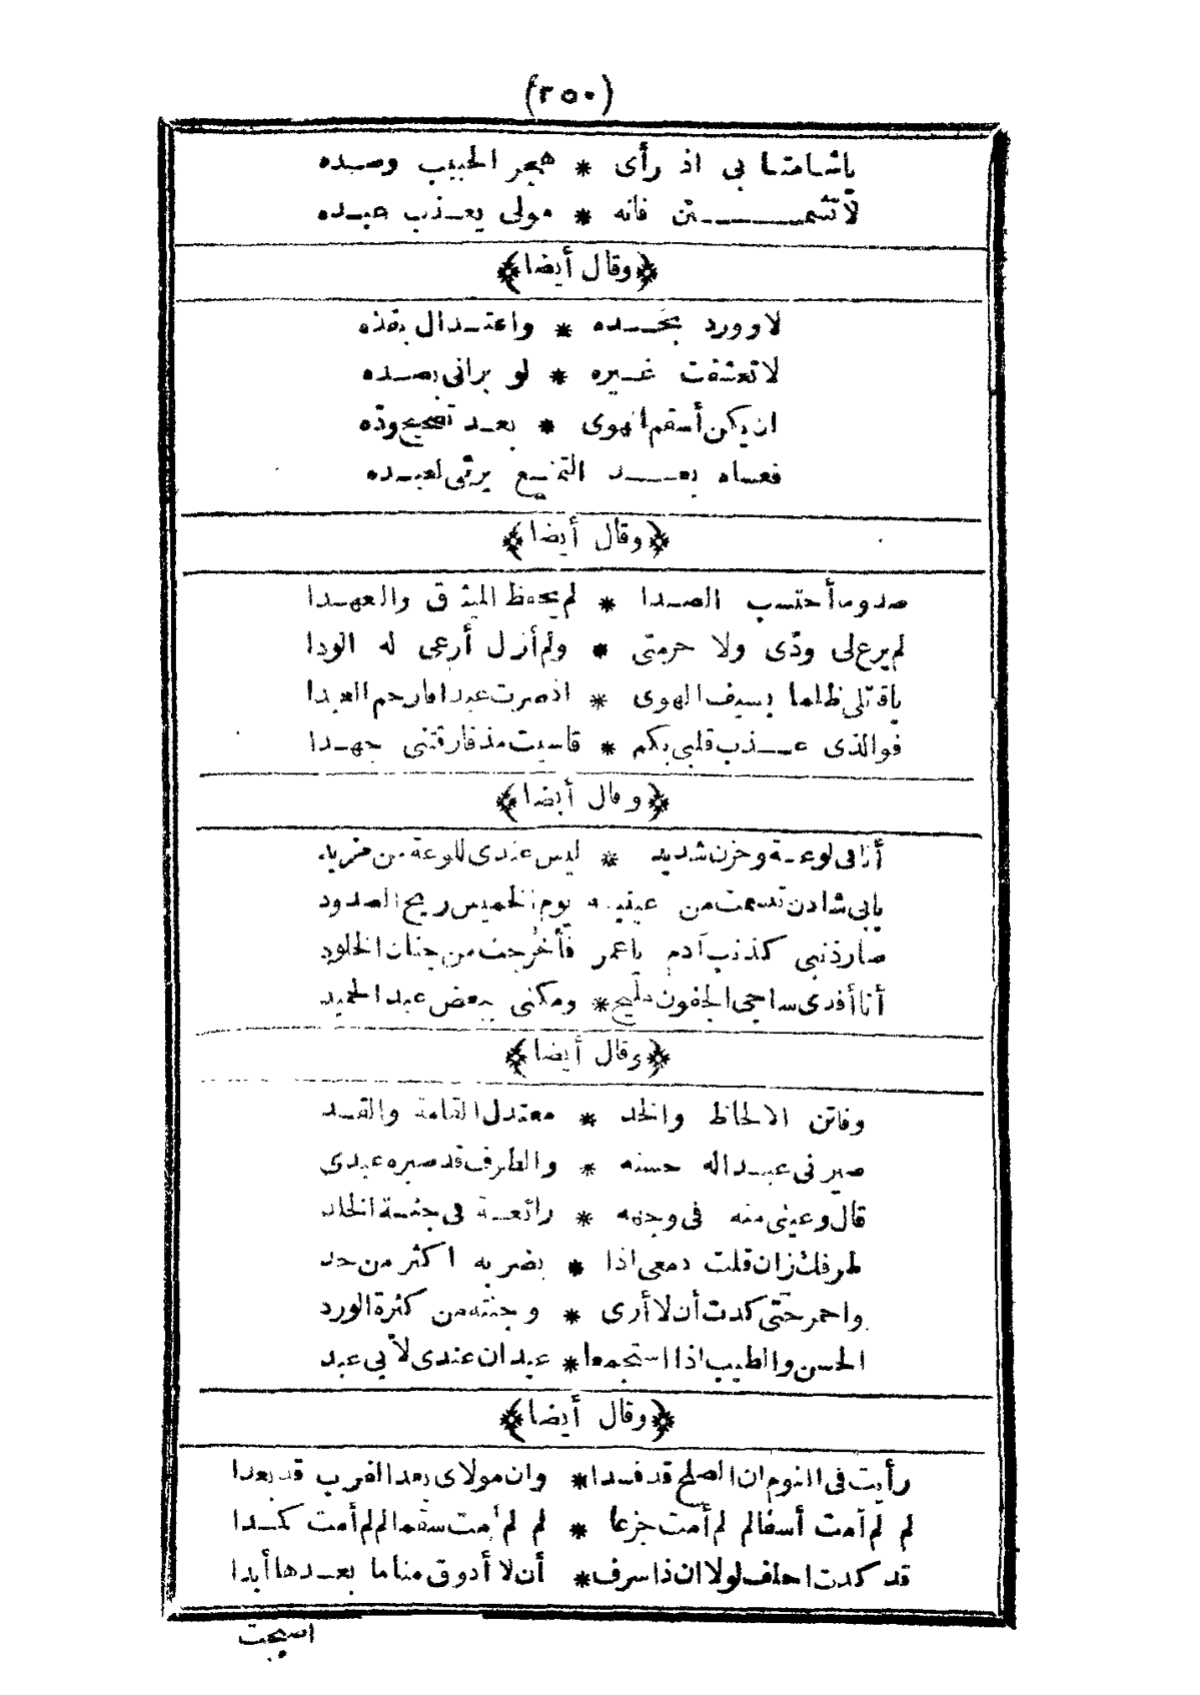 (٢٥٠)
ياشامتا بى اذ رأى * هجر الحبيب وصده
لاتشمتن فانه * مولى يعذب عبده
﴿وقال أيضا﴾
لا وورد بخده * واعتدال بقده
لاتعشقت غيره * لو برانى بصده
ان يكن أسقم الهوى * بعد تصحيح وده
فعساه بعد التمنع يرثى لعبده
﴿وقال أيضا﴾
صد وما أحتسب الصدا * لم يحفظ الميثاق والعهدا
لم يرع لى ودّى ولا حرمتى * ولم أزل أرعى له الودا
ياقاتلى ظلما بسيف الهوى * اذ صرت عبدا فارحم العبدا
فوالذى عذب قلبى بكم * قاسيت مذ فارقتنى جهدا
﴿وقال أيضا﴾
أنا فى لوعة وحزن شديد * ليس عندى للوعة من مزيد
بابى شادن تنسمت من عينيه يوم الخميس ريح الصدود
صار ذنبى كذنب آدم ياعمر فأخرجت من جنان الخلود
أنا أفدى ساجى الجفون مليح * ومكنى ببعض عبد الحميد
﴿وقال أيضا﴾
وفاتن الالحاظ والخد * معتدل القامة والقد
صيرنى عبدا له حسنه * والطرف قد صيره عبدى
قال وعينى منه فى وجهه * رائعة فى جنة الخلد
طرفك زان قلت دمعى اذا * يضربه اكثر من حد
واحمر حتى كدت أن لا أرى * وجنته من كثرة الورد
الحسن والطيب اذا استجمعا * عبدان عندى لأبى عبد
﴿وقال أيضا﴾
رأيت فى النوم ان الصلح قد فسدا * وان مولاى بعد القرب قد بعدا
لم لم أمت أسفا لم لم أمت جزعا * لم لم أمت سقما لم لم أمت كمدا
قد كدت احلف لولا ان ذا سرف * أن لا أذوق مناما بعدها أبدا